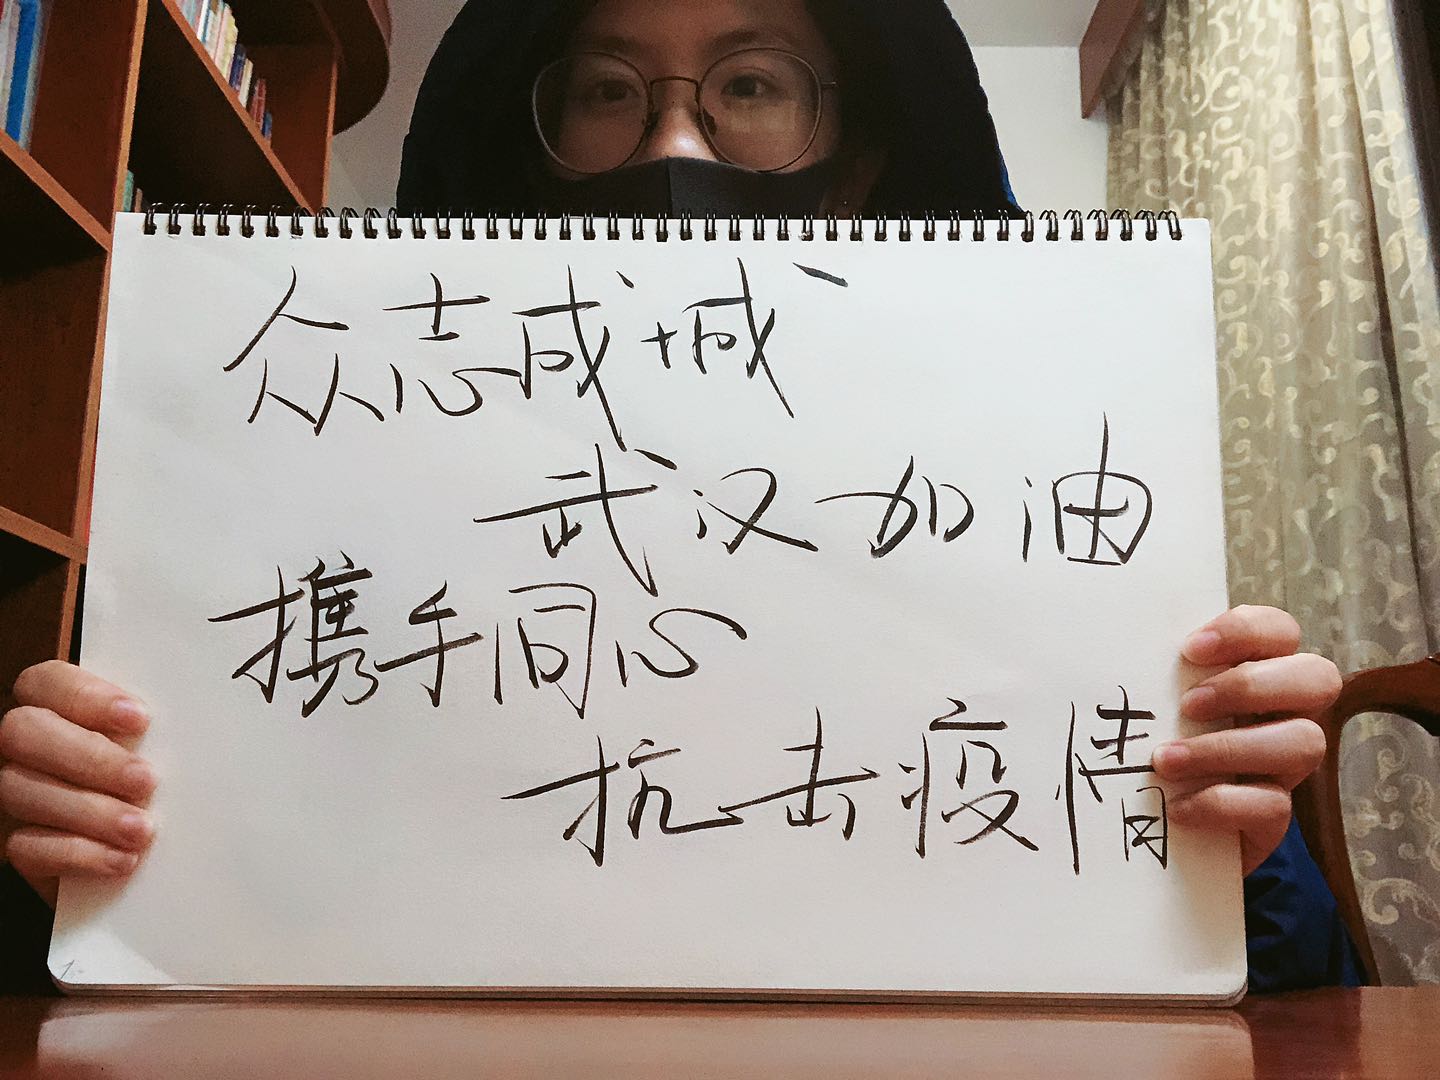 众志成城
武汉加油
携手同心
抗击疫情